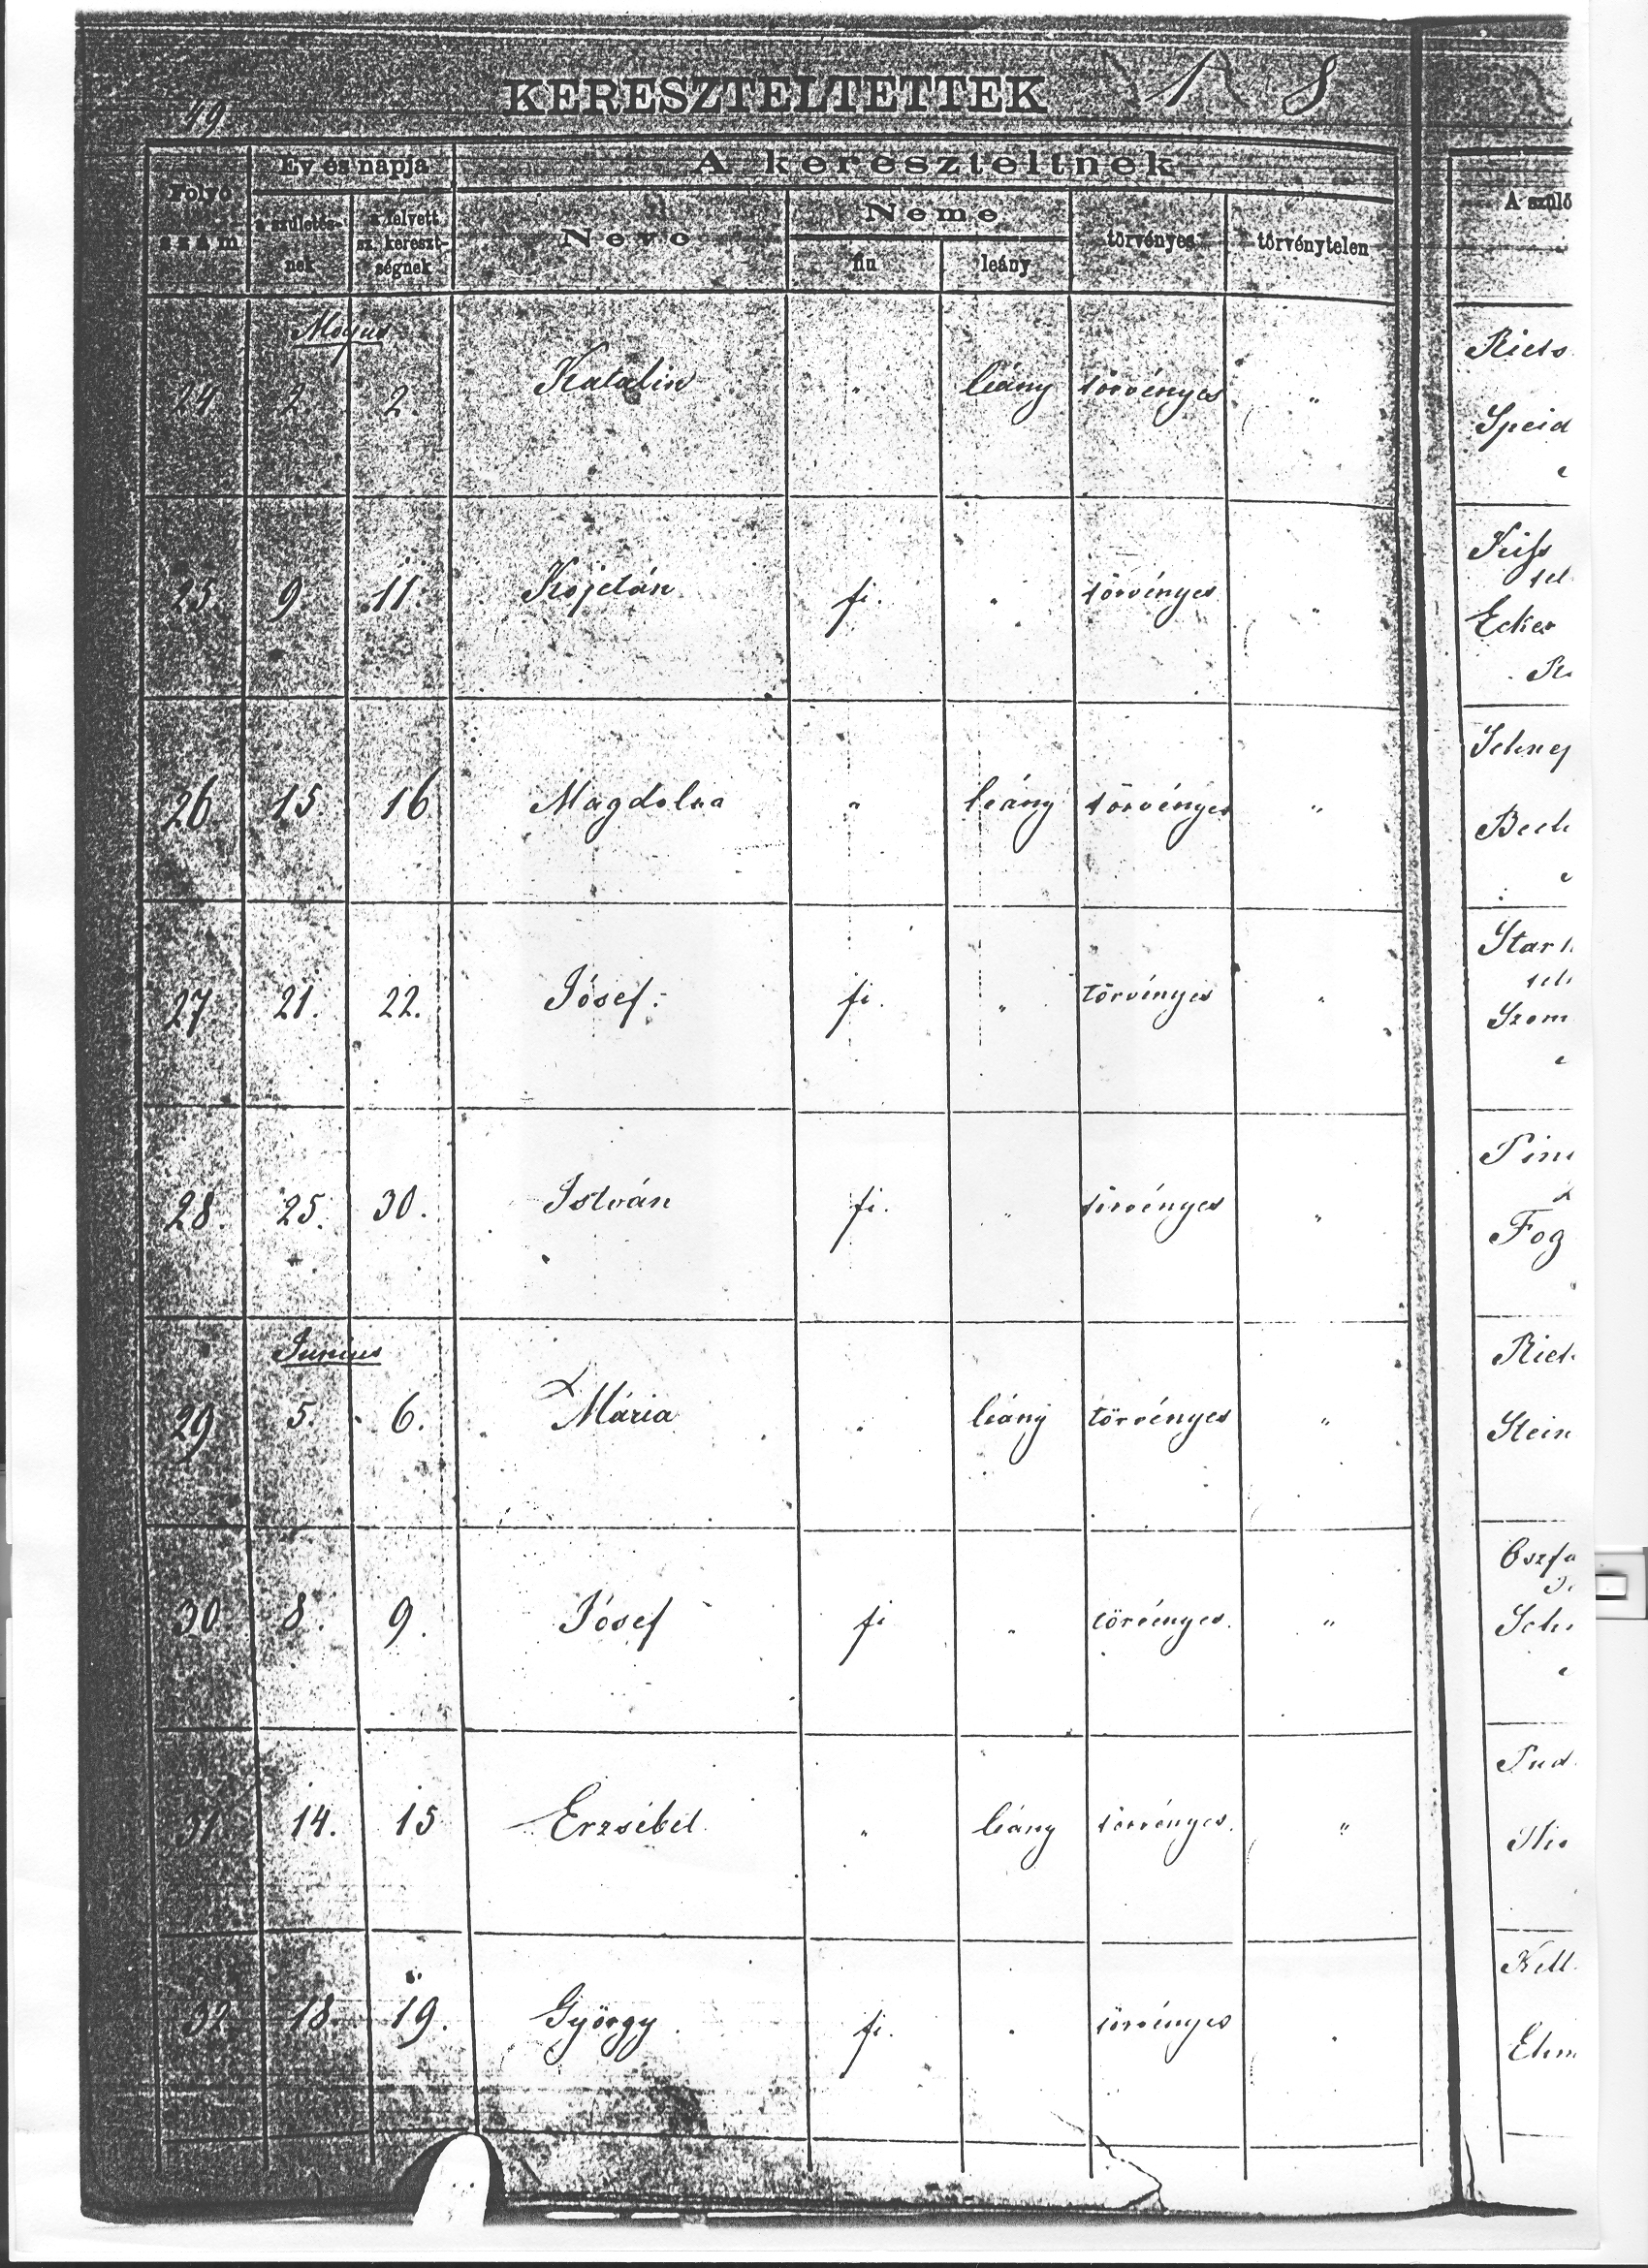 49
KERESZTELTETTEK 1 8
Folyó szám
Év és napja
a születés-nek
a felvett sz. kereszt-ségnek
A kereszteltnek
Neve
Neme
fiu
leány
törvényes
törvénytelen
A szülő
Majus
24 2. 2. Katalin " leány törvényes "
Speid
25. 9 11. fi. " törvényes "
Ecker
26. 15. 16 Magdolna " leány törvényes "
27 21. 22. Jósef. fi. " törvényes "
28. 25. 30. István fi. " törvényes "
Fog
Junius
29 5. 6. Mária " leány törvényes "
Stein
30 8. 9. Jósef fi " törvényes. "
31 14. 15 Erzsébet " leány törvényes. "
32. 18. 19. György fi. " törvényes "